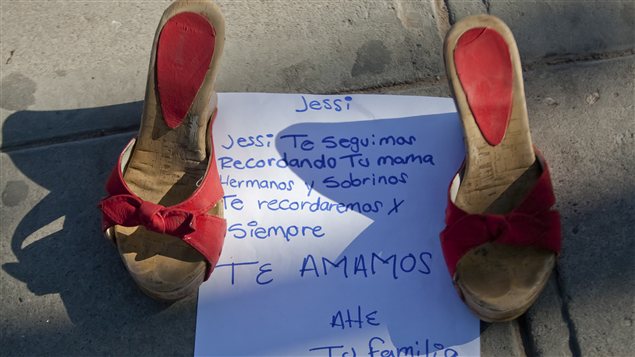 Jessi
Jessi Te Seguimos
Recordando Tu mama
Hermanos y Sobrinos
Te recordaremos x
Siempre
TE AMAMOS
Tu familia